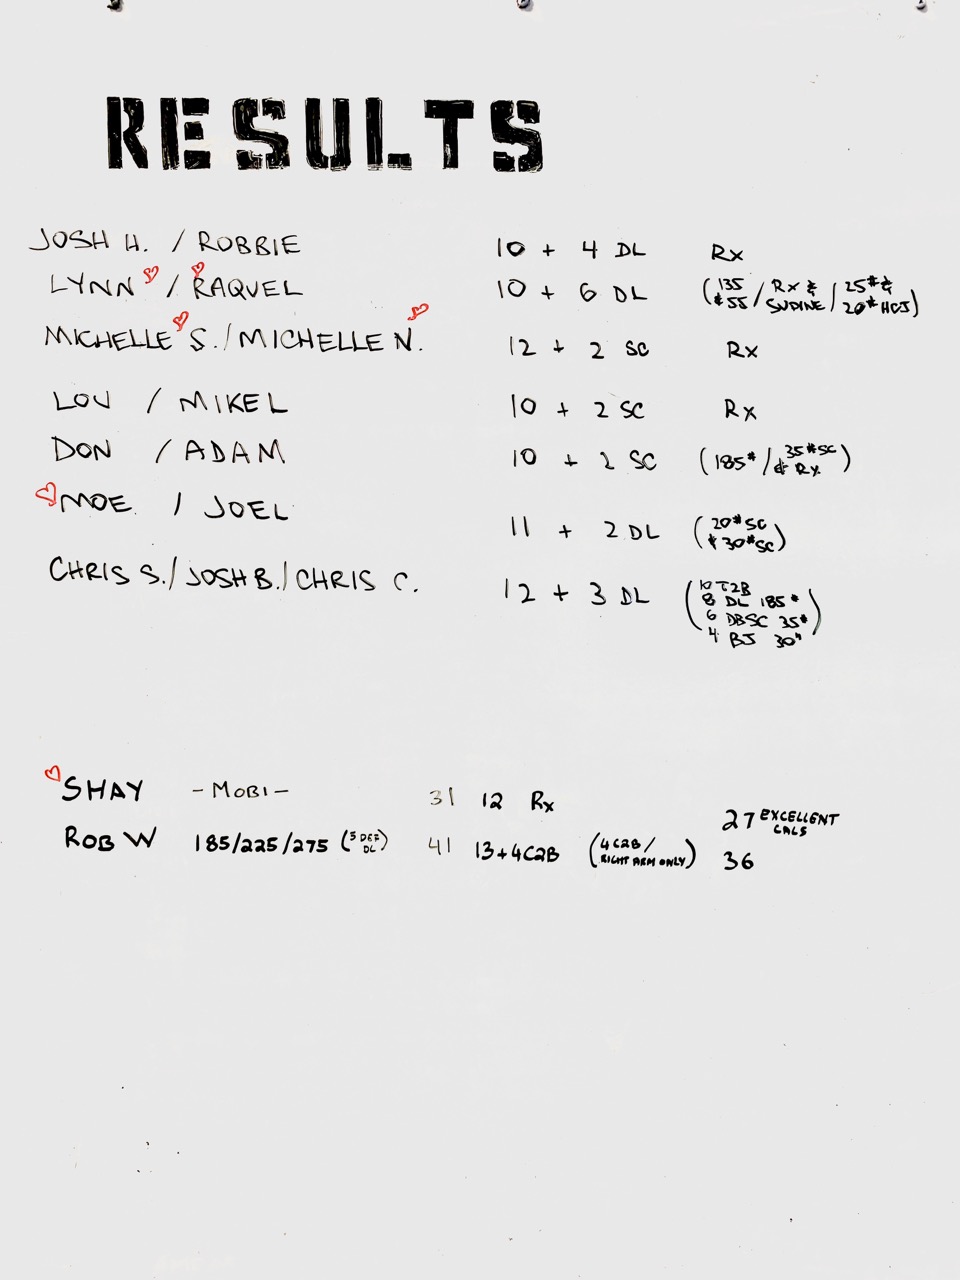 RESULTS
JOSH H. / ROBBIE 10 + 4 DL Rx
LYNN / RAQUEL 10 + 6 DL (135 & 55 / Rx & SUPINE / 25# & 20# HCJ)
MICHELLE S. / MICHELLE N. 12 + 2 SC Rx
LOU / MIKEL 10 + 2 SC Rx
DON / ADAM 10 + 2 SC (185# / 35# SC & Rx)
MOE / JOEL 11 + 2 DL (20# SC & 30# SC)
CHRIS S. / JOSH B. / CHRIS C. 12 + 3 DL (10 T2B
8 DL 185#
6 DBSC 35#
4 BJ 30")
SHAY - MOBI - 31 12 Rx 27 EXCELLENT CALS
ROB W 185/225/275 (5 DEF DL) 41 13+4C2B (4C2B/ RIGHT ARM ONLY) 36